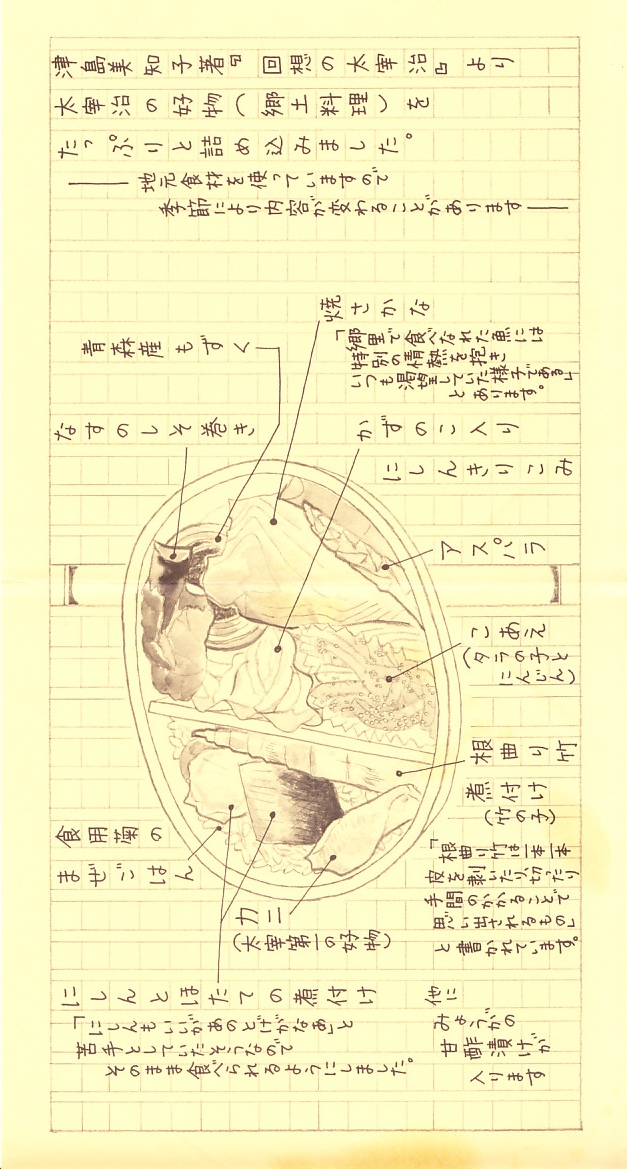 津島美知子著『回想の太宰治』より
太宰治の好物（郷土料理）を
たっぷりと詰め込みました。
――地元食材を使っていますので
季節により内容が変わることがあります――
焼さかな
「郷里で食べなれた魚には
特別の情熱を抱き
いつも渇望していた様子である」
とあります。
青森産もずく
なすのしそ巻き
かずのこ入り
にしんきりこみ
アスパラ
こあえ
（タラの子と
にんじん）
根曲り竹
煮付け
（竹の子）
「根曲り竹は一本一本
皮を剥いたり、切ったり
手間のかかることで
思い出されるもの」
と書かれています。
食用菊の
まぜごはん
カニ
（太宰第一の好物）
にしんとほたての煮付け
「にしんもいいがあのとげがなあ」と
苦手としていたそうなので
そのまま食べられるようにしました。
他に
みょうがの
甘酢漬けが
入ります